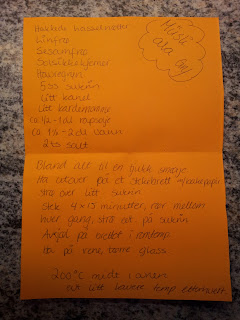 Müsli
ala Gry
Hakkede hasselnøtter
Linfrø
Sesamfrø
Solsikkekjerner
Havregryn
5ss sukrin
Litt kanel
Litt kardemomme
ca 1/2 - 1dl rapsolje
ca 1 1/2 - 2dl vann
2 ts salt
Bland alt til en tykk smørje
Ha utover på et stekebrett m/bakepapir
strø over litt sukrin
stek 4 x 15 minutter, rør mellom
hver gang, strø evt. på sukrin
Avkjøl på brettet i romtemp
Ha på rene, tørre glass
200°C midt i ovnen
evt litt lavere temp etterhvert.